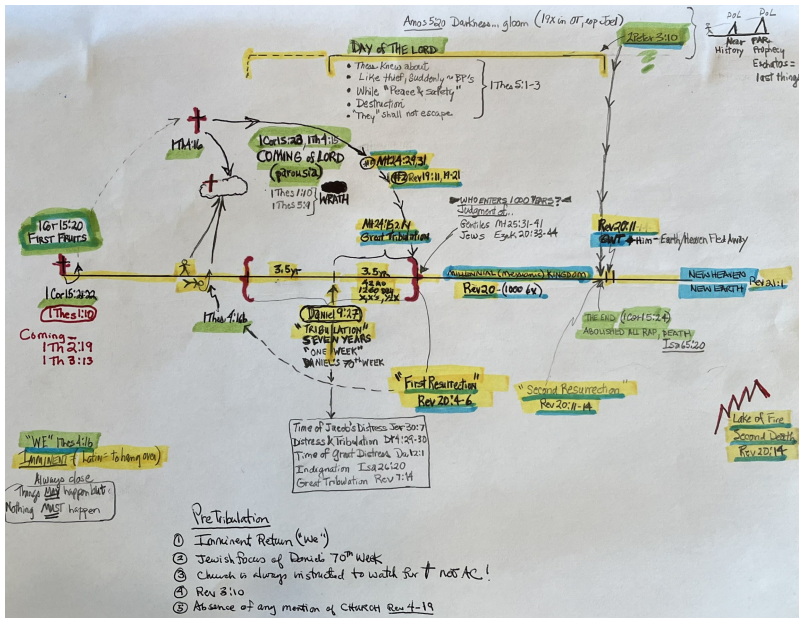 Amos 5:20 Darkness... gloom (19x in OT, esp Joel)
2 Peter 3:10
DoL DoL
Near FAR
History Prophecy
Eschatos =
last things
DAY OF THE LORD
• These Knew about
• Like thief, Suddenly ~ BP's
• While "Peace & Safety"
• Destruction
• "They" shall not escape
1 Thes 5:1-3
1 Th 4:16
1 Cor 15:23, 1 Th 4:15
COMING of LORD
(parousia)
1 Thes 1:10
1 Thes 5:9
WRATH
#1 Mt 24:29,31
#2 Rev 19:11, 19-21
Mt 24:15, 21
Great Tribulation
WHO ENTERS 1000 YEARS?
Judgment of...
Gentiles Mt 25:31-41
Jews Ezek 20:33-44
1 Cor 15:20
FIRST FRUITS
1 Cor 15:21-22
1 Thes 1:10
Coming
1 Th 2:19
1 Th 3:13
1 Thes 4:16
3.5yr
3.5yr
42mo
1260 days
x, x's, ½x
Daniel 9:27
"TRIBULATION"
SEVEN YEARS
"ONE WEEK"
DANIEL'S 70th WEEK
MILLENNIAL (Messianic) KINGDOM
Rev 20 - (1000 6x)
Rev 20:11
GWT → Him - Earth/Heaven Fled Away
NEW HEAVEN
NEW EARTH
Rev 21:1
THE END (1 Cor 15:24)
ABOLISHED ALL RAP, DEATH
Isa 65:20
"First Resurrection"
Rev 20:4-6
"Second Resurrection"
Rev 20:11-14
Lake of Fire
Second Death
Rev 20:14
Time of Jacob's Distress Jer 30:7
Distress & Tribulation Dt 4:29-30
Time of Great Distress Da 12:1
Indignation Isa 26:20
Great Tribulation Rev 7:14
"WE" 1 Thes 4:16
IMMINENT (Latin = to hang over)
Always close
Things MAY happen but
Nothing MUST happen
PreTribulation
① Imminent Return ("We")
② Jewish focus of Daniel's 70th Week
③ Church is always instructed to watch for † not AC!
④ Rev 3:10
⑤ Absence of any mention of CHURCH Rev 4-19